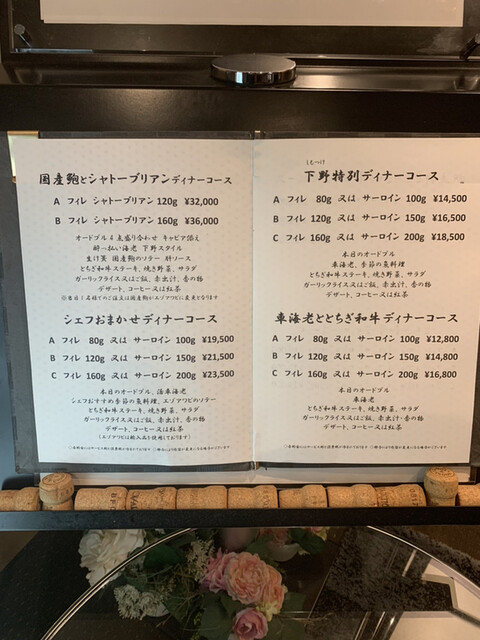 国産鮑とシャトーブリアンディナーコース
A フィレ シャトーブリアン 120g ¥32,000
B フィレ シャトーブリアン 160g ¥36,000
オードブル4点盛り合わせ キャビア添え
酔っ払い海老 下野スタイル
生け簀 国産鮑のソテー 肝ソース
とちぎ和牛ステーキ、焼き野菜、サラダ
ガーリックライス又はご飯、赤出汁、香の物
デザート、コーヒー又は紅茶
シェフおまかせディナーコース
A フィレ 80g 又は サーロイン 100g ¥19,500
B フィレ 120g 又は サーロイン 150g ¥21,500
C フィレ 160g 又は サーロイン 200g ¥23,500
本日のオードブル、活車海老
シェフおすすめ季節の魚料理、エゾアワビのソテー
とちぎ和牛ステーキ、焼き野菜、サラダ
ガーリックライス又はご飯、赤出汁、香の物
デザート、コーヒー又は紅茶
(エゾアワビは輸入品を使用しております)
しもつけ
下野特別ディナーコース
A フィレ 80g 又は サーロイン 100g ¥14,500
B フィレ 120g 又は サーロイン 150g ¥16,500
C フィレ 160g 又は サーロイン 200g ¥18,500
本日のオードブル
車海老、季節の魚料理
とちぎ和牛ステーキ、焼き野菜、サラダ
ガーリックライス又はご飯、赤出汁、香の物
デザート、コーヒー又は紅茶
車海老ととちぎ和牛ディナーコース
A フィレ 80g 又は サーロイン 100g ¥12,800
B フィレ 120g 又は サーロイン 150g ¥14,800
C フィレ 160g 又は サーロイン 200g ¥16,800
本日のオードブル
車海老
とちぎ和牛ステーキ、焼き野菜、サラダ
ガーリックライス又はご飯、赤出汁・香の物
デザート、コーヒー又は紅茶